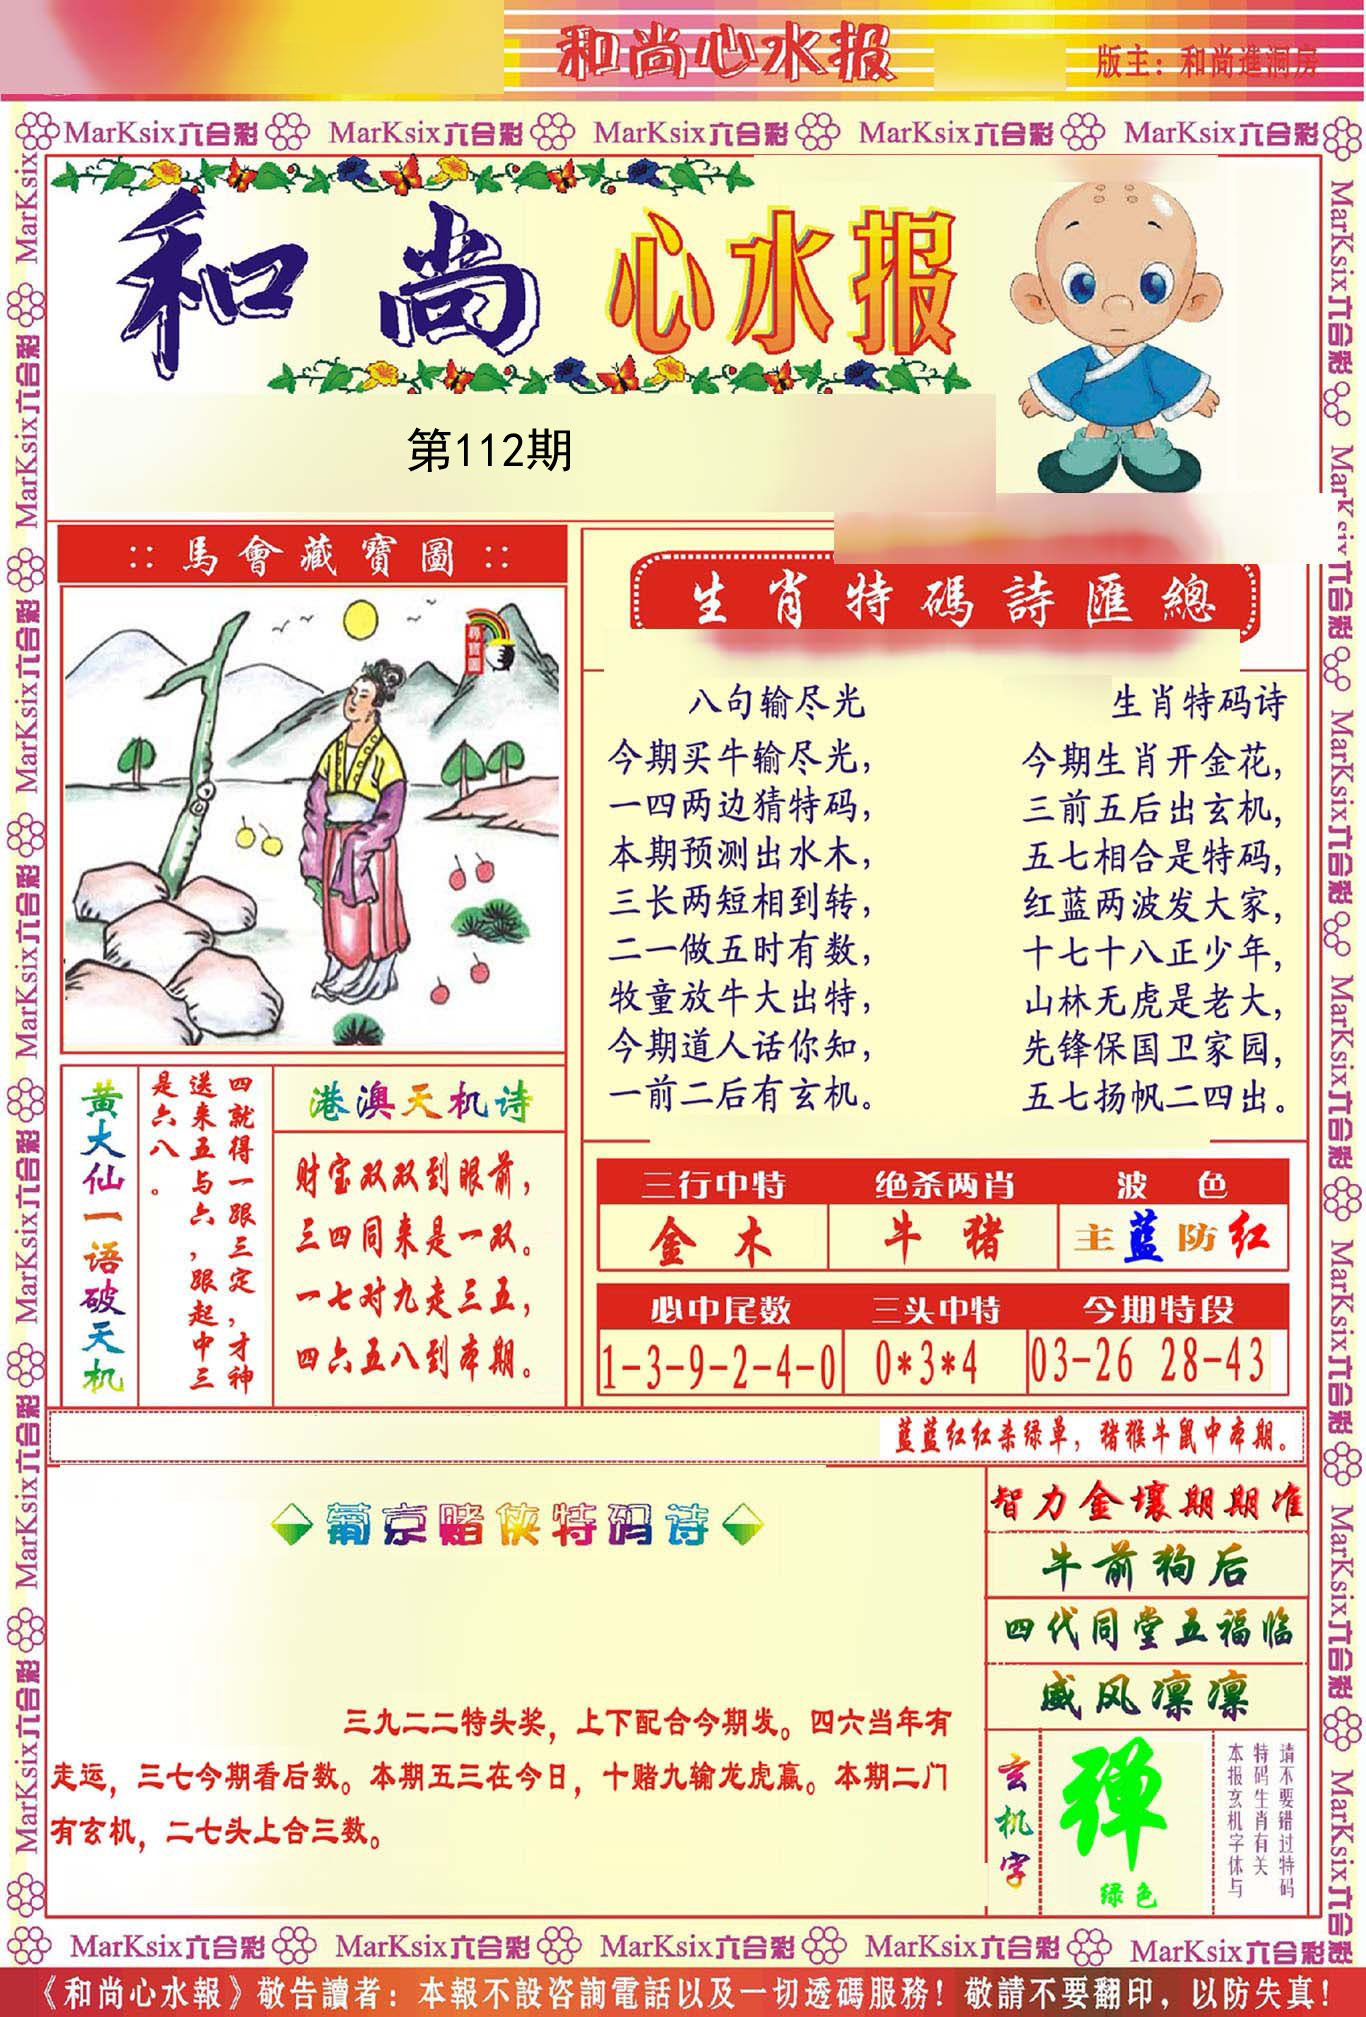 和尚心水报
版主：和尚進洞房
MarKsix六合彩 MarKsix六合彩 MarKsix六合彩 MarKsix六合彩 MarKsix六合彩
和尚心水报
第112期
:: 馬會藏寶圖 ::
尋寶圖
生肖特碼詩匯總
八句输尽光
今期买牛输尽光，
一四两边猜特码，
本期预测出水木，
三长两短相到转，
二一做五时有数，
牧童放牛大出特，
今期道人话你知，
一前二后有玄机。
生肖特码诗
今期生肖开金花，
三前五后出玄机，
五七相合是特码，
红蓝两波发大家，
十七十八正少年，
山林无虎是老大，
先锋保国卫家园，
五七扬帆二四出。
黄大仙一语破天机
四就得一跟三定，才神
送来五与六，跟起中三
是六八。
港澳天机诗
财宝双双到眼前，
三四同来是一双。
一七对九走三五，
四六五八到本期。
三行中特 绝杀两肖 波色
金木 牛猪 主蓝防红
必中尾数 三头中特 今期特段
1-3-9-2-4-0 0*3*4 03-26 28-43
蓝蓝红红杀绿单，猪猴牛鼠中本期。
葡京赌侠特码诗
三九二二特头奖，上下配合今期发。四六当年有
走运，三七今期看后数。本期五三在今日，十赌九输龙虎赢。本期二门
有玄机，二七头上合三数。
智力金壤期期准
牛前狗后
四代同堂五福临
威风凛凛
玄机字
弹
绿色
请不要错过特码
特码生肖有关
本报玄机字体与
MarKsix六合彩 MarKsix六合彩 MarKsix六合彩 MarKsix六合彩 MarKsix六合彩
《和尚心水報》敬告讀者：本報不設咨詢電話以及一切透碼服務！敬請不要翻印，以防失真！